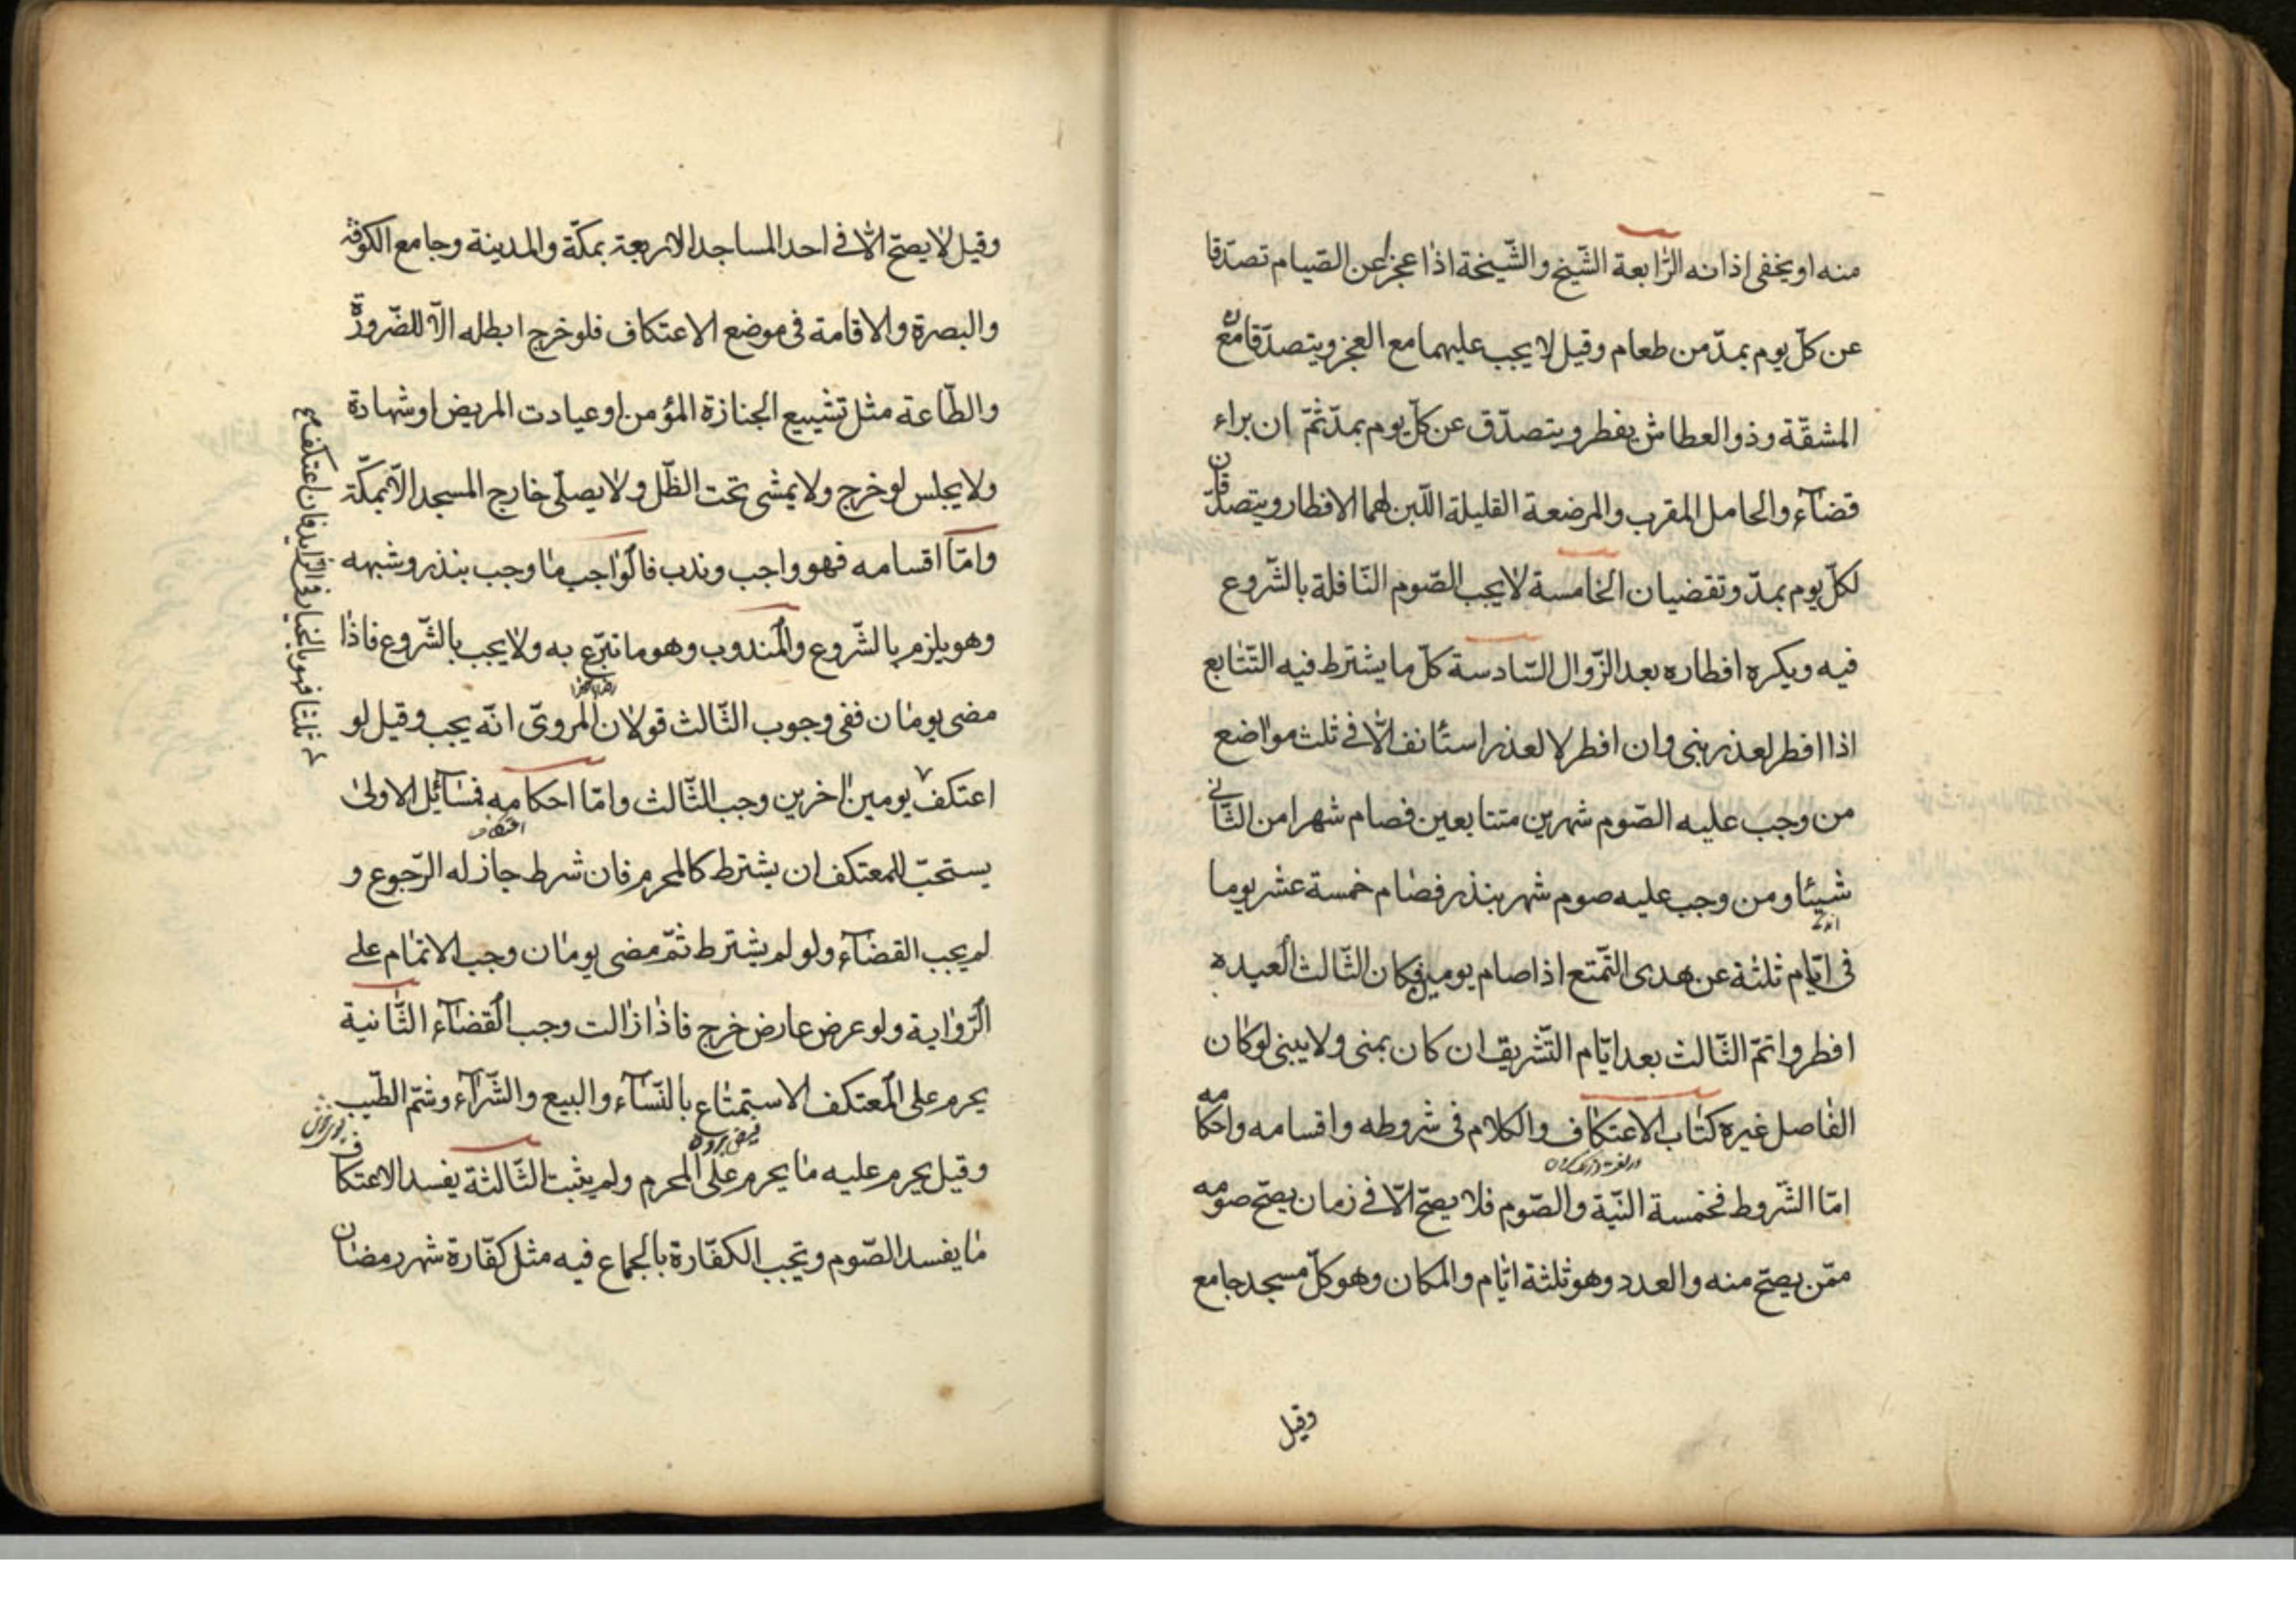 منه او يخفى اذانه الرّابعة الشّيخ والشّيخة اذا عجزا عن الصّيام تصدّقا
عن كلّ يوم بمدّ من طعام وقيل لا يجب عليهما مع العجز ويتصدّقا مع
المشقّة وذو العطاش يفطر ويتصدّق عن كلّ يوم بمدّ ثمّ ان براء
قضآء والحامل المقرب والمرضعة القليلة اللّبن لهما الافطار ويتصدّقان
لكلّ يوم بمدّ وتقضيان الخامسة لا يجب الصّوم النّافلة بالشّروع
فيه ويكره افطاره بعد الزّوال السّادسة كلّ ما يشترط فيه التّتابع
اذا افطر لعذر بنى وان افطر لا لعذر استأنف الّا فى ثلث مواضع
من وجب عليه الصّوم شهرين متتابعين فصام شهرا من الثّانى
شيئا ومن وجب عليه صوم شهر بنذر فصام خمسة عشر يوما
فى ايّام ثلثة عن هدى التّمتع اذا صام يومين فكان الثّالث العيد
افطر واتمّ الثّالث بعد ايّام التّشريق ان كان بمنى ولا يبنى لو كان
الفاصل غيره كتاب الاعتكاف والكلام فى شروطه واقسامه واحكامه
امّا الشّروط فخمسة النّيّة والصّوم فلا يصحّ الّا فى زمان يصحّ صومه
ممّن يصحّ منه والعدد وهو ثلثة ايّام والمكان وهو كلّ مسجد جامع
وقيل
وقيل لا يصحّ الّا فى احد المساجد الاربعة بمكّة والمدينة وجامع الكوفة
والبصرة والاقامة فى موضع الاعتكاف فلو خرج ابطله الّا للضّرورة
والطّاعة مثل تشييع الجنازة المؤمن او عيادت المريض او شهادة
ولا يجلس لو خرج ولا يمشى تحت الظّل ولا يصلّى خارج المسجد الّا بمكّة
وامّا اقسامه فهو واجب وندب فالواجب ما وجب بنذر وشبهه
وهو يلزم بالشّروع والمندوب وهو ما تبرّع به ولا يجب بالشّروع فاذا
مضى يومان ففى وجوب الثّالث قولان المروىّ انّه يجب وقيل لو
اعتكف يومين اخرين وجب الثّالث وامّا احكامه فمسآئل الاولى
يستحبّ للمعتكف ان يشترط كالمحرم فان شرط جاز له الرّجوع و
لم يجب القضآء ولو لم يشترط ثمّ مضى يومان وجب الاتمام على
الرّواية ولو عرض عارض خرج فاذا زالت وجب القضآء الثّانية
يحرم على المعتكف الاستمتاع بالنّسآء والبيع والشّرآء وشمّ الطّيب
وقيل يحرم عليه ما يحرم على المحرم ولم يثبت الثّالثة يفسد الاعتكاف
ما يفسد الصّوم وتجب الكفّارة بالجماع فيه مثل كفّارة شهر رمضان
ثلثا فهو بالخيار فى الزّايد فان اعتكف